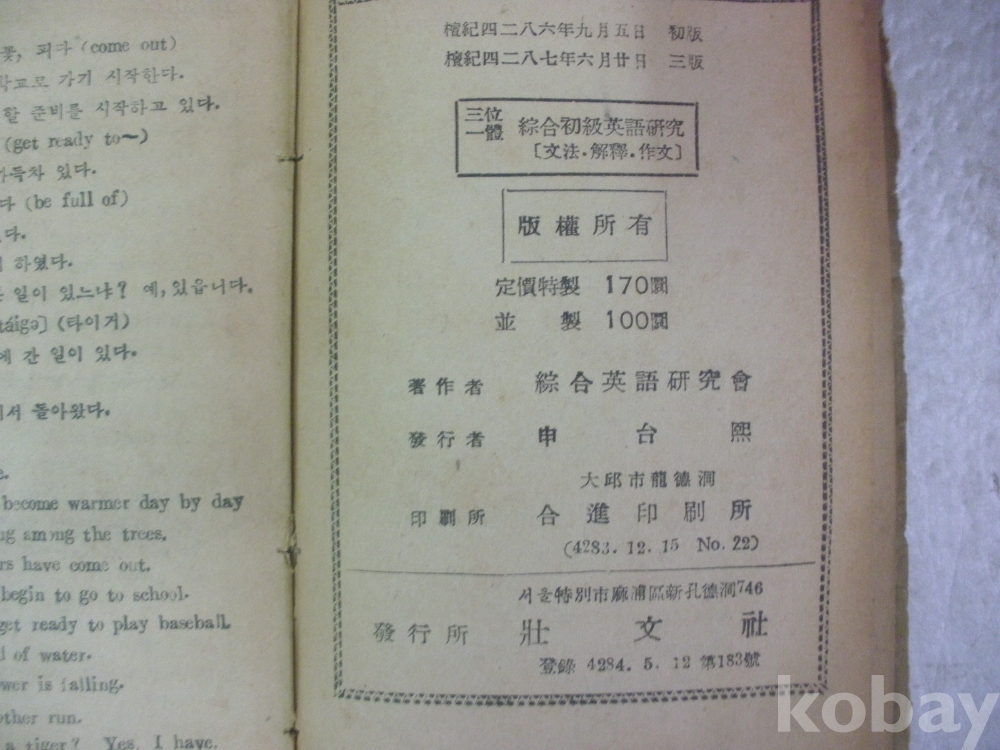 꽃, 피다 (come out)
학교로 가기 시작한다.
할 준비를 시작하고 있다.
(get ready to~)
가득차 있다.
다 (be full of)
있다.
하였다.
일이 있느냐? 예, 있읍니다.
táigə] (타이거)
에 간 일이 있다.
에서 돌아왔다.
become warmer day by day
among the trees.
have come out.
begin to go to school.
get ready to play baseball.
of water.
is falling.
other run.
a tiger? Yes, I have.
檀紀四二八六年九月五日 初版
檀紀四二八七年六月廿日 三版
三位一體 綜合初級英語硏究
〔文法·解釋·作文〕
版權所有
定價特製 170圜
並製 100圜
著作者 綜合英語硏究會
發行者 申台熙
大邱市龍德洞
印刷所 合進印刷所
(4283.12.15 No.22)
서울特別市麻浦區新孔德洞746
發行所 壯文社
登錄 4284.5.12 第183號
kobay